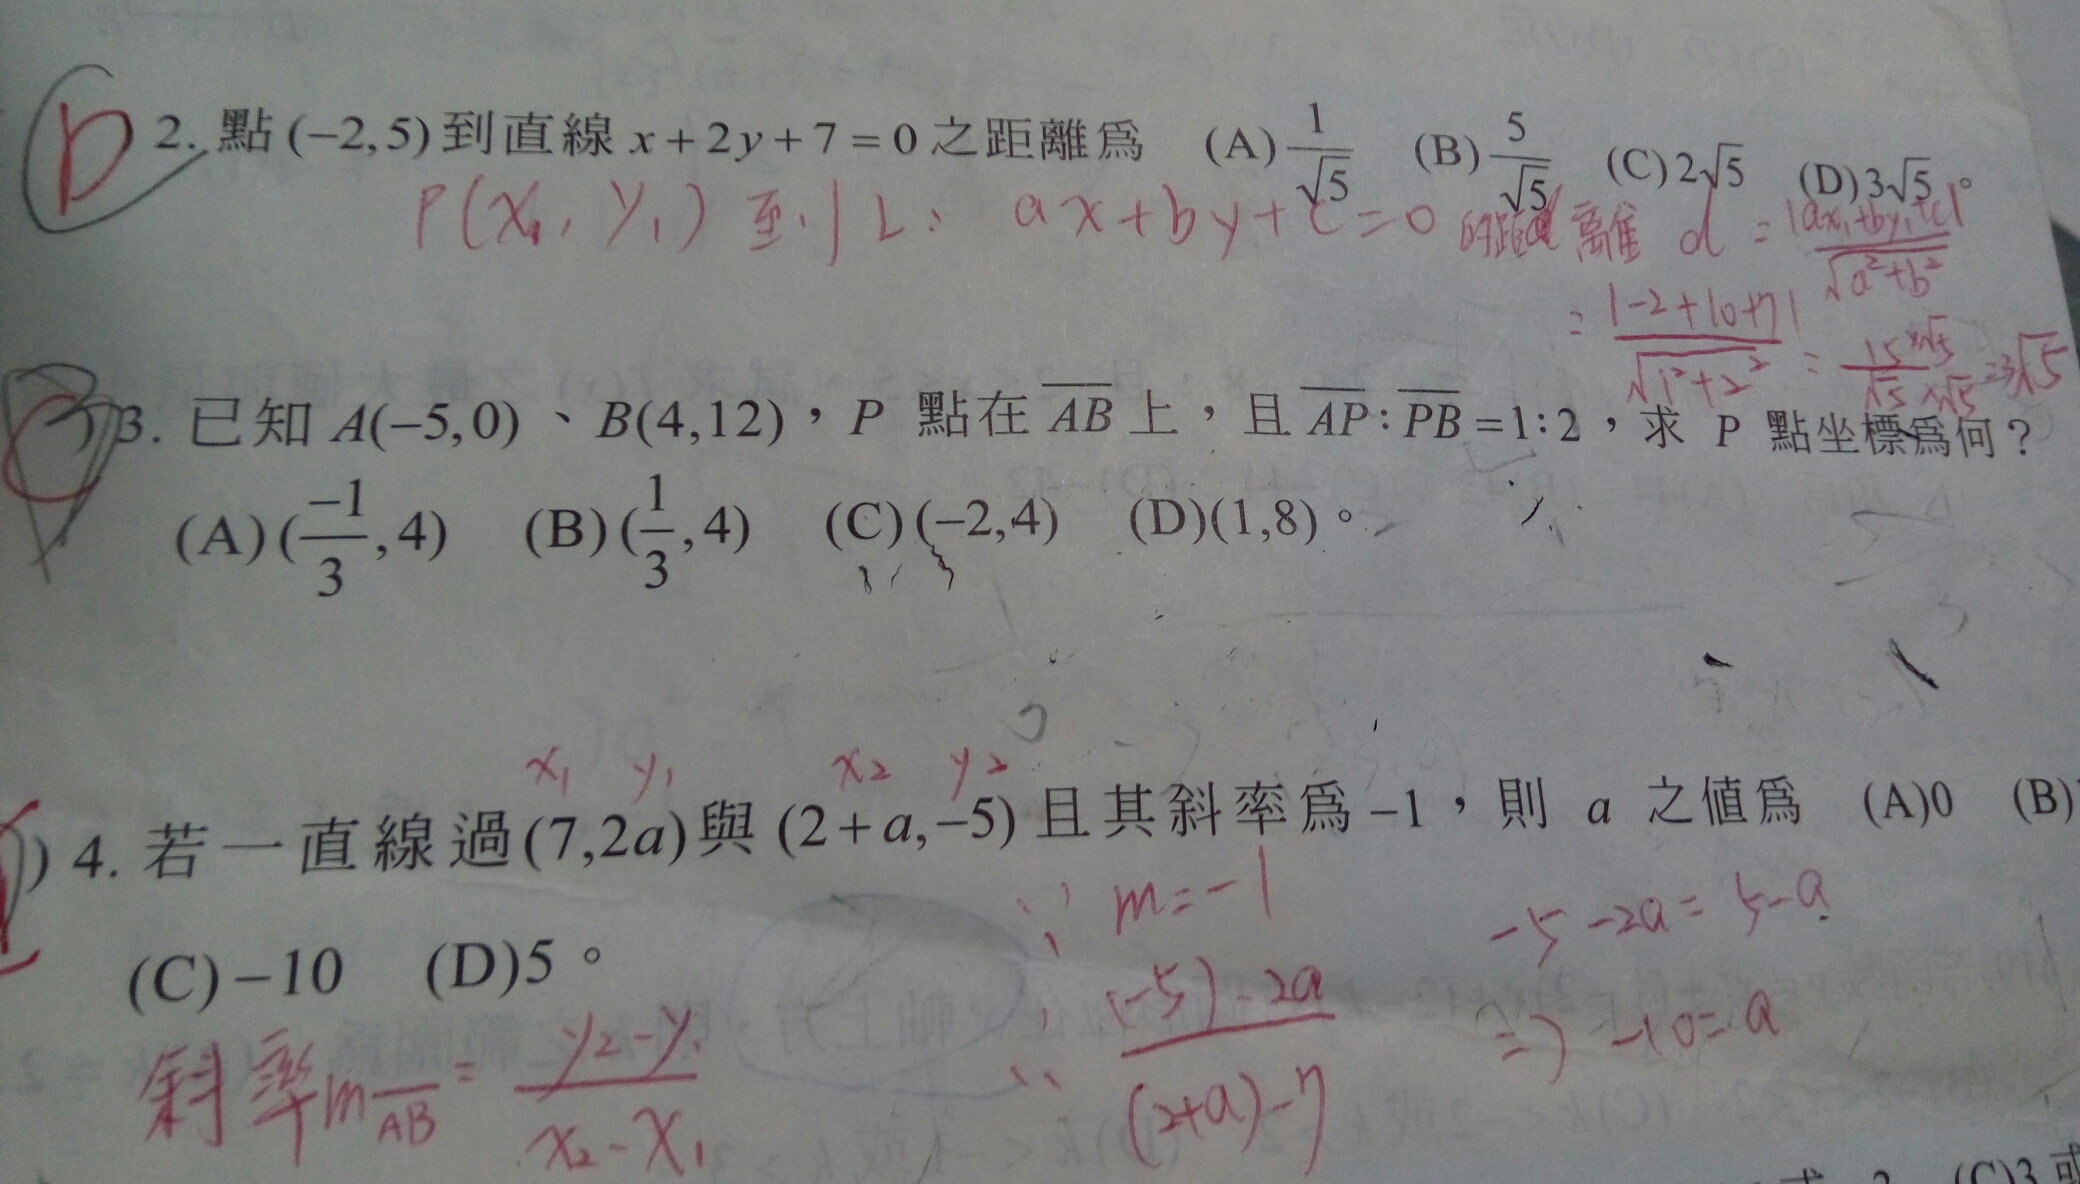 D 2. 點(−2,5)到直線 x+2y+7=0 之距離為 (A) 1/√5 (B) 5/√5 (C) 2√5 (D) 3√5。
P(x₁, y₁) 至 L: ax+by+c=0 的距離 d = |ax₁+by₁+c| / √(a²+b²)
= |-2+10+7| / √(1²+2²) = 15×√5 / √5×√5 = 3√5
C 3. 已知 A(−5,0)、B(4,12),P 點在 AB 上,且 AP:PB=1:2,求 P 點坐標為何?
(A) (−1/3, 4) (B) (1/3, 4) (C) (−2,4) (D) (1,8)。
x₁ y₁ x₂ y₂
) 4. 若一直線過(7,2a)與(2+a,−5)且其斜率為−1,則 a 之值為 (A)0 (B)
∵ m=-1
-5-2a=5-a
(C)−10 (D)5。
∴ (-5)-2a / (2+a)-7
⇒ -10=a
斜率 m AB = y₂-y₁ / x₂-x₁
或 2 (C)3 或